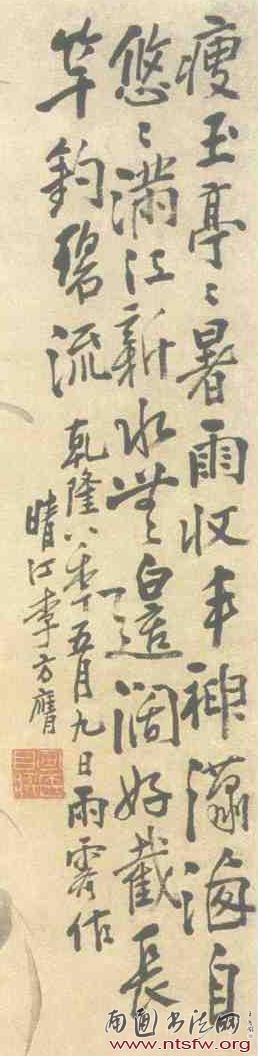 瘦玉亭〻暑雨收丰神瀟洒自
悠〻滿江新水無邊闊好截長
竿釣碧流
乾隆八年五月九日雨霽作
晴江李方膺
南通书法网
www.ntsfw.org